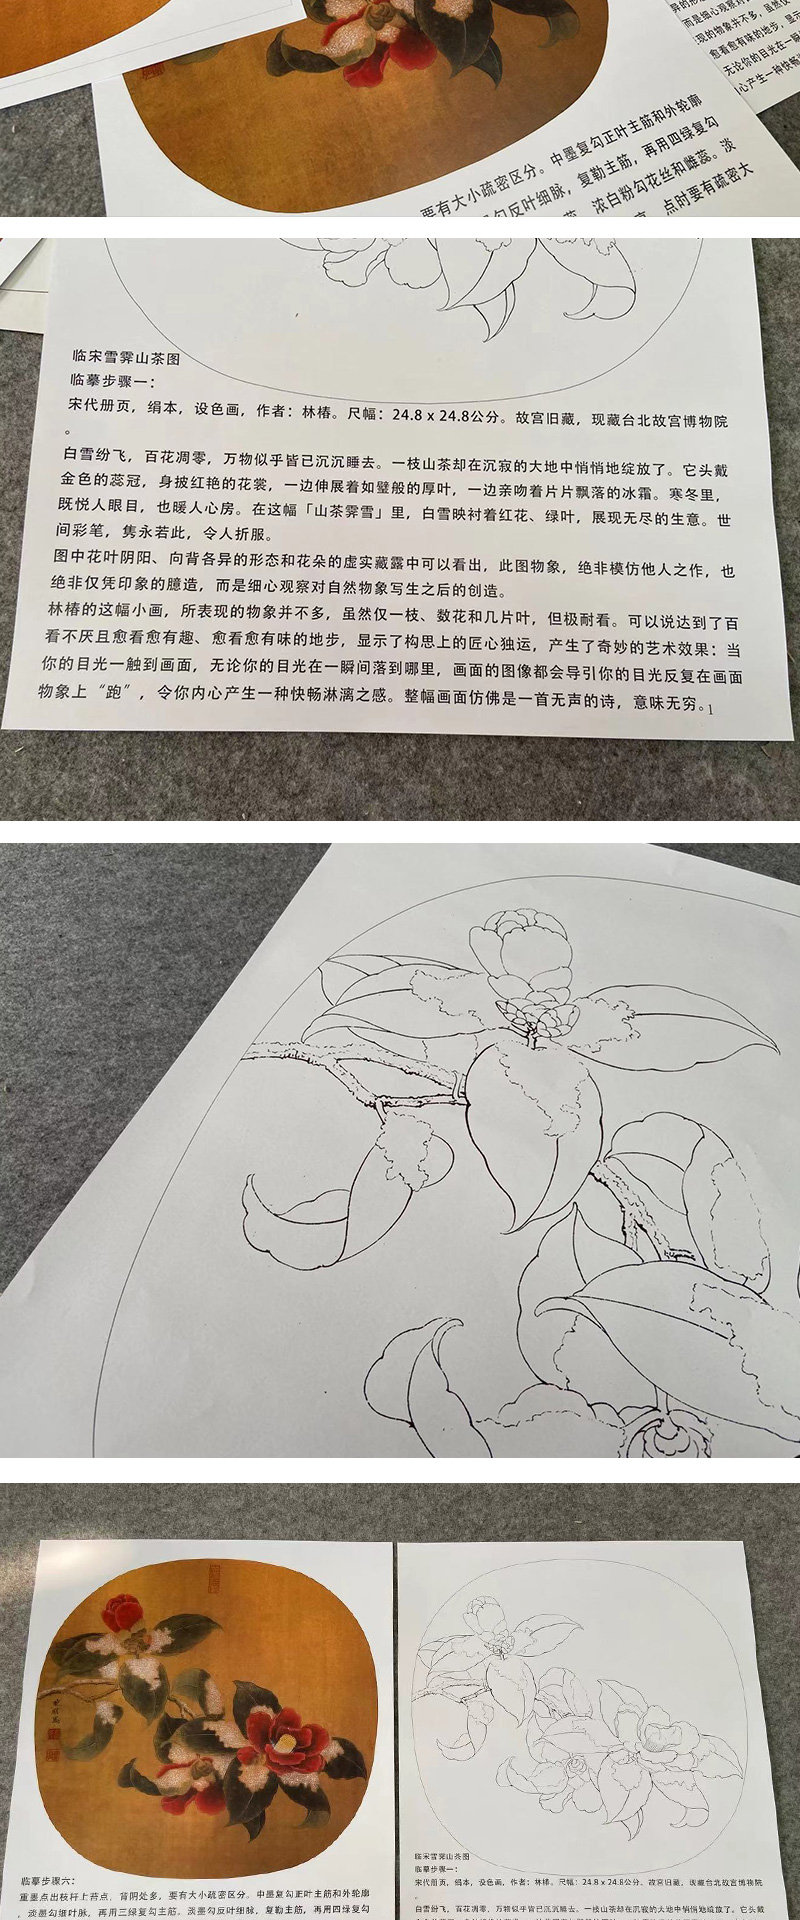 异的形态
而是细心观察对
现的物象并不多，虽然仅
愈看愈有味的地步，显示
无论你的目光在一瞬
心产生一种快畅
要有大小疏密区分。中墨复勾正叶主筋和外轮廓
勾反叶细脉，复勒主筋，再用四绿复勾
浓白粉勾花丝和雌蕊。淡
点时要有疏密大
临宋雪霁山茶图
临摹步骤一：
宋代册页，绢本，设色画，作者：林椿。尺幅：24.8 x 24.8公分。故宫旧藏，现藏台北故宫博物院
。
白雪纷飞，百花凋零，万物似乎皆已沉沉睡去。一枝山茶却在沉寂的大地中悄悄地绽放了。它头戴
金色的蕊冠，身披红艳的花裳，一边伸展着如璧般的厚叶，一边亲吻着片片飘落的冰霜。寒冬里，
既悦人眼目，也暖人心房。在这幅「山茶霁雪」里，白雪映衬着红花、绿叶，展现无尽的生意。世
间彩笔，隽永若此，令人折服。
图中花叶阴阳、向背各异的形态和花朵的虚实藏露中可以看出，此图物象，绝非模仿他人之作，也
绝非仅凭印象的臆造，而是细心观察对自然物象写生之后的创造。
林椿的这幅小画，所表现的物象并不多，虽然仅一枝、数花和几片叶，但极耐看。可以说达到了百
看不厌且愈看愈有趣、愈看愈有味的地步，显示了构思上的匠心独运，产生了奇妙的艺术效果：当
你的目光一触到画面，无论你的目光在一瞬间落到哪里，画面的图像都会导引你的目光反复在画面
物象上“跑”，令你内心产生一种快畅淋漓之感。整幅画面仿佛是一首无声的诗，意味无穷。1
临摹步骤六：
重墨点出枝杆上苔点，背阴处多，要有大小疏密区分。中墨复勾正叶主筋和外轮廓
，淡墨勾细叶脉，再用三绿复勾主筋。淡墨勾反叶细脉，复勒主筋，再用四绿复勾
临宋雪霁山茶图
临摹步骤一：
宋代册页，绢本，设色画，作者：林椿。尺幅：24.8 x 24.8公分。故宫旧藏，现藏台北故宫博物院
。
白雪纷飞，百花凋零，万物似乎皆已沉沉睡去。一枝山茶却在沉寂的大地中悄悄地绽放了。它头戴